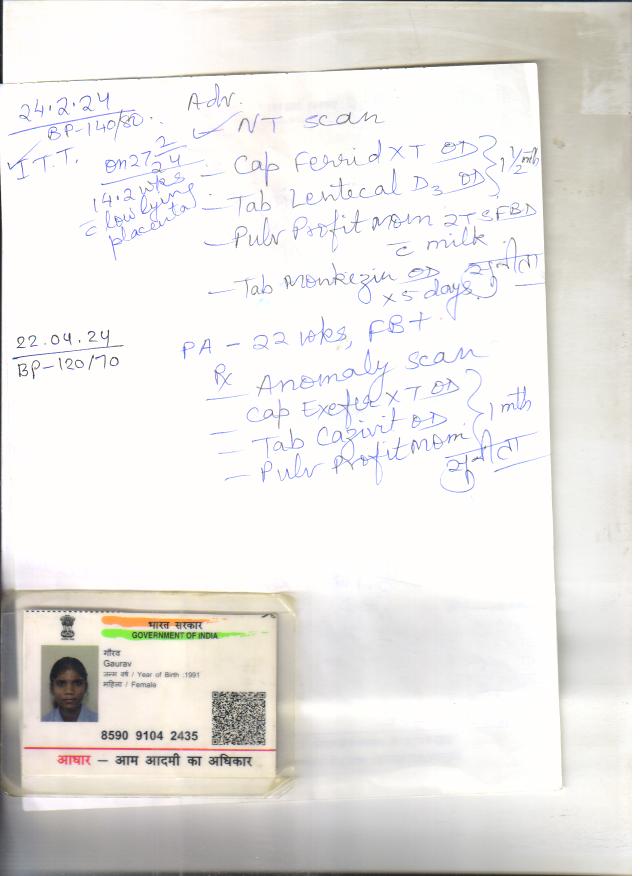 24.2.24
BP-140/80
Adv.
✓ NT scan
✓ I T.T.
on 27 2/24
14.2 wks
c̄ low lying
placenta
— Cap Ferrid XT OD
— Tab Lentecal D3 OD
} 1 1/2 mth
— Pulv Profit mom 2TSFBD
c̄ milk
— Tab Monkezin OD
x 5 days
सुनीता
22.04.24
BP-120/70
PA - 22 wks, FB+
Rx Anomaly scan
— Cap Exefer XT OD
— Tab Cazivit OD
— Pulv Profit mom
} 1 mth
सुनीता
भारत सरकार
GOVERNMENT OF INDIA
गौरव
Gaurav
जन्म वर्ष / Year of Birth :1991
महिला / Female
8590 9104 2435
आधार – आम आदमी का अधिकार